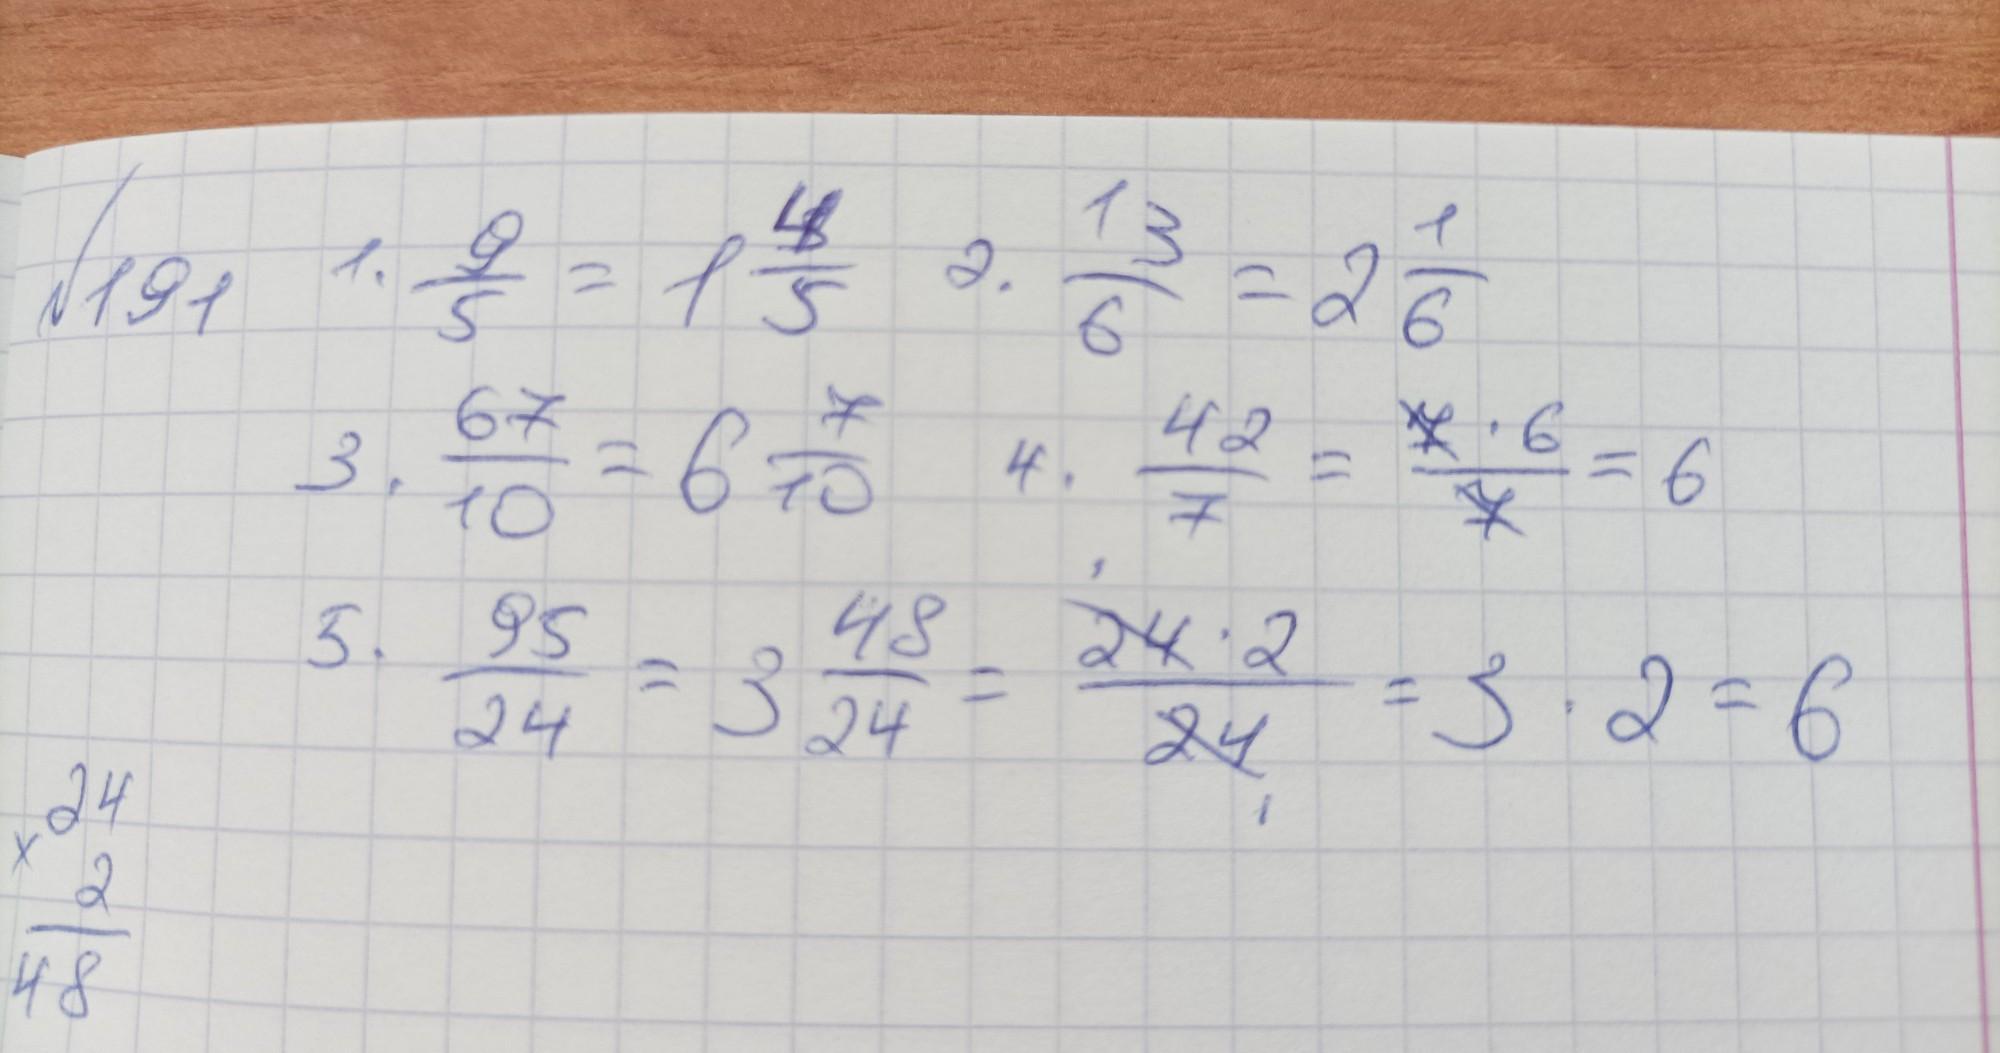 №191 1. 9/5 = 1 4/5 2. 13/6 = 2 1/6
3. 67/10 = 6 7/10 4. 42/7 = 7·6/7 = 6
5. 95/24 = 3 48/24 = 24·2/24 = 3·2 = 6
1
1
24
×
2
48